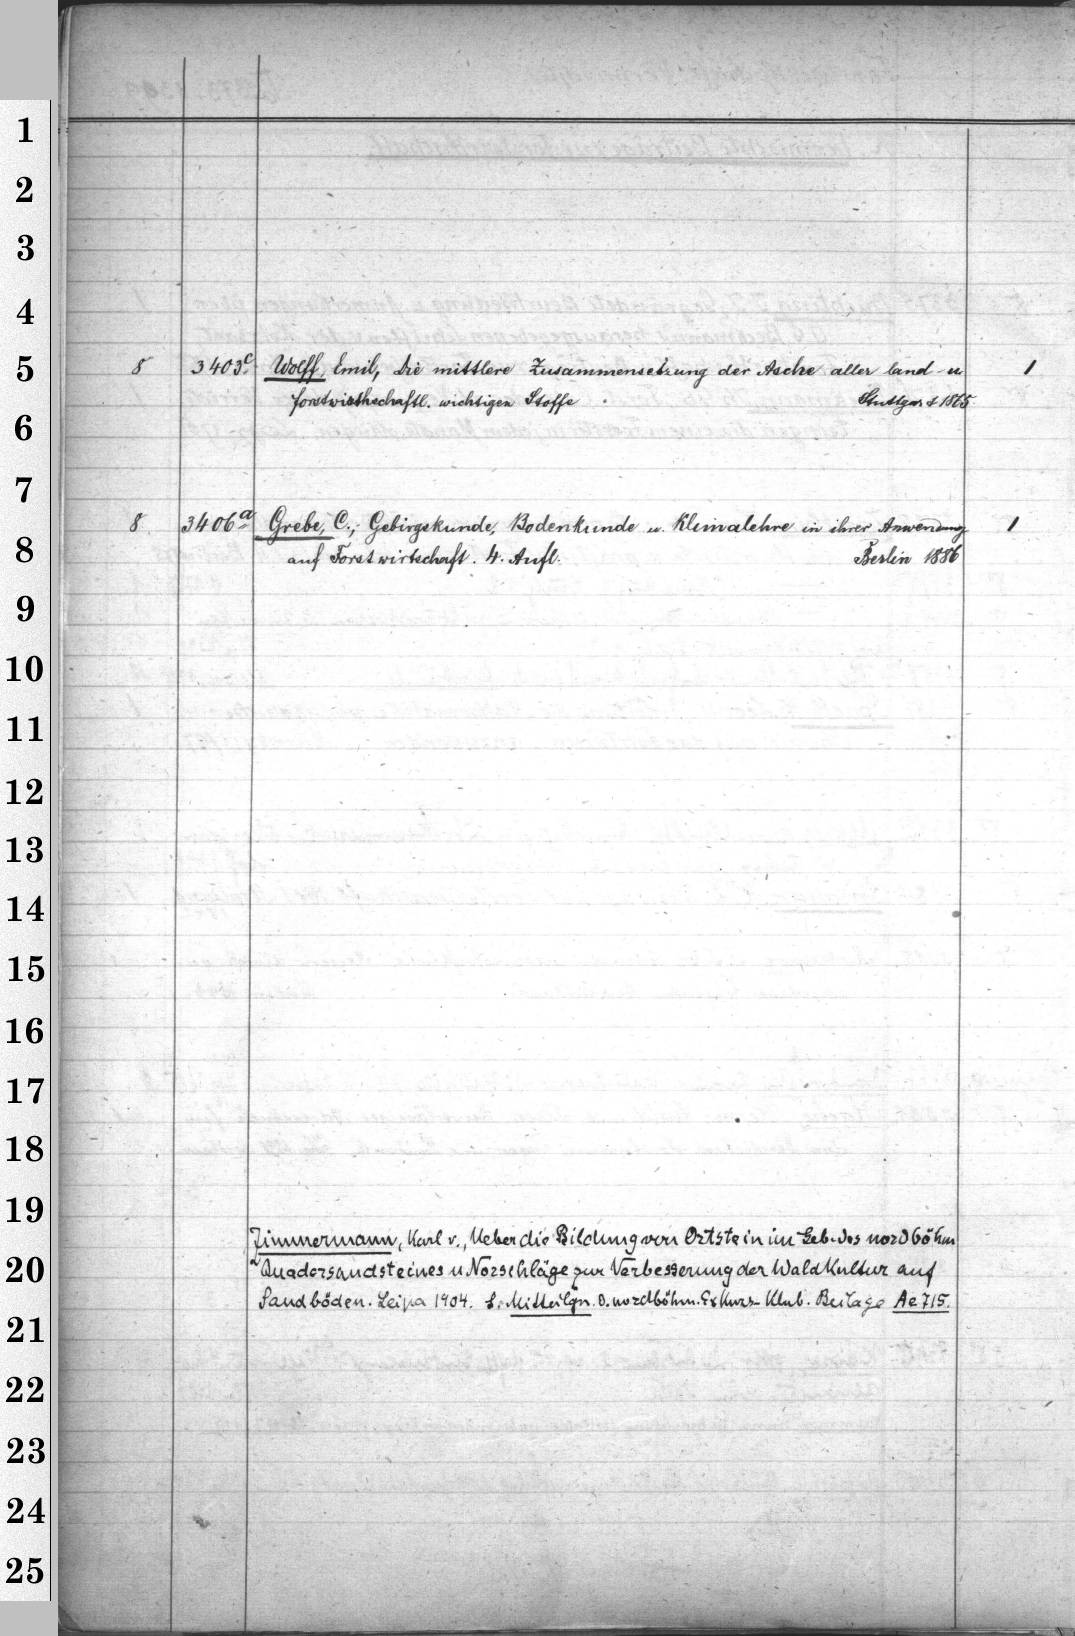 1
2
3
4
5
6
7
8
9
10
11
12
13
14
15
16
17
18
19
20
21
22
23
24
25
8 3403c Wolff, Emil, Die mittlere Zusammensetzung der Asche aller land- u
forstwirthschaftl. wichtigen Stoffe. Stuttgart 1865. 1
8 3406a Grebe, C., Gebirgskunde, Bodenkunde u. Klimalehre in ihrer Anwendung
auf Forstwirtschaft. 4. Aufl. Berlin 1886 1
Zimmermann, Karl v., Ueber die Bildung von Ortstein im Geb. des nordböhm
Quadersandsteines u Vorschläge zur Verbesserung der Waldkultur auf
Sandböden. Leipa 1904. S. Mitteilgn. d. nordböhm. Exkurs. Klub. Beilage Ae 715.